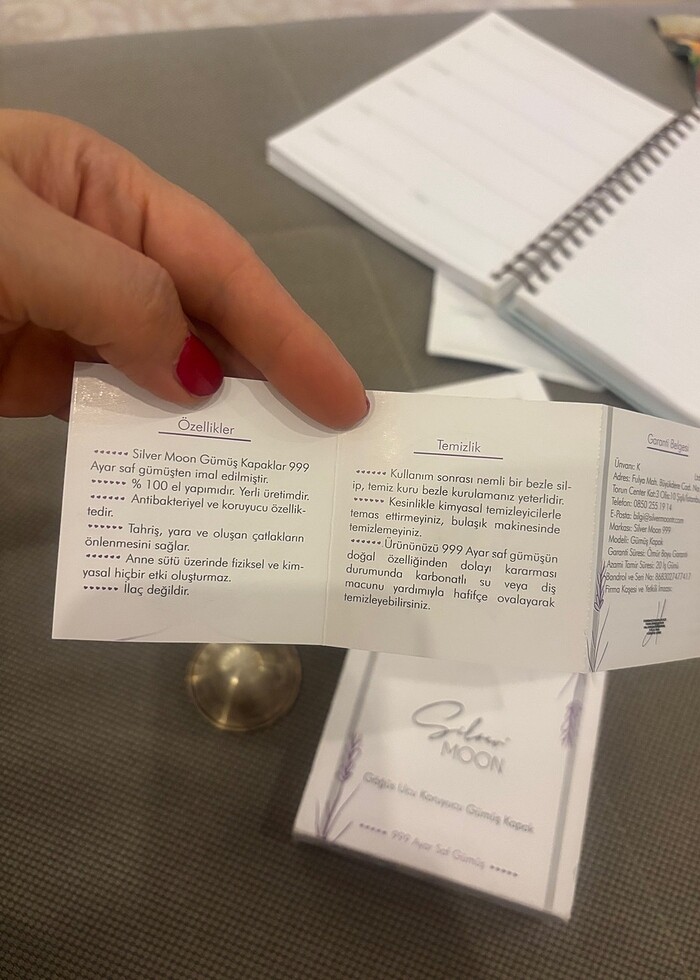 Özellikler
Silver Moon Gümüş Kapaklar 999
Ayar saf gümüşten imal edilmiştir.
% 100 el yapımıdır. Yerli üretimdir.
Antibakteriyel ve koruyucu özellik-
tedir.
Tahriş, yara ve oluşan çatlakların
önlenmesini sağlar.
Anne sütü üzerinde fiziksel ve kim-
yasal hiçbir etki oluşturmaz.
İlaç değildir.
Temizlik
Kullanım sonrası nemli bir bezle sil-
ip, temiz kuru bezle kurulamanız yeterlidir.
Kesinlikle kimyasal temizleyicilerle
temas ettirmeyiniz, bulaşık makinesinde
temizlemeyiniz.
Ürününüzü 999 Ayar saf gümüşün
doğal özelliğinden dolayı kararması
durumunda karbonatlı su veya diş
macunu yardımıyla hafifçe ovalayarak
temizleyebilirsiniz.
Garanti Belgesi
Ünvanı: K
Adres: Fulya Mah. Büyükdere Cad. No
Torun Center Kat:3 Ofis:10 Şişli
Telefon: 0850 255 19 14
E-Posta: bilgi@silvermoontr.com
Markası: Silver Moon 999
Modeli: Gümüş Kapak
Garanti Süresi: Ömür Boyu Garanti
Azami Tamir Süresi: 20 İş Günü
Bandrol ve Seri No: 8683027477417
Firma Kaşesi ve Yetkili İmzası:
Silver
MOON
Göğüs Ucu Koruyucu Gümüş Kapak
999 Ayar Saf Gümüş